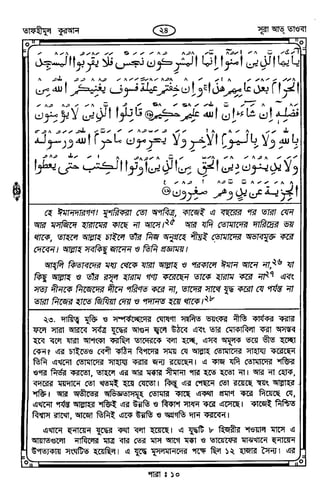 তাফহীমুল কুরআন
২৪
সূরা আত্ তাওবা
يَٰٓأَيُّهَا ٱلَّذِينَ ءَامَنُوٓا۟ إِنَّمَا ٱلْمُشْرِكُونَ نَجَسٌ فَلَا يَقْرَبُوا۟ ٱلْمَسْجِدَ
ٱلْحَرَامَ بَعْدَ عَامِهِمْ هَٰذَا وَإِنْ خِفْتُمْ عَيْلَةً فَسَوْفَ يُغْنِيكُمُ ٱللَّهُ مِن
فَضْلِهِۦٓ إِن شَآءَ إِنَّ ٱللَّهَ عَلِيمٌ حَكِيمٌ ۝ قَٰتِلُوا۟ ٱلَّذِينَ لَا يُؤْمِنُونَ
بِٱللَّهِ وَلَا بِٱلْيَوْمِ ٱلْءَاخِرِ وَلَا يُحَرِّمُونَ مَا حَرَّمَ ٱللَّهُ وَرَسُولُهُۥ
وَلَا يَدِينُونَ دِينَ ٱلْحَقِّ مِنَ ٱلَّذِينَ أُوتُوا۟ ٱلْكِتَٰبَ حَتَّىٰ يُعْطُوا۟
ٱلْجِزْيَةَ عَن يَدٍ وَهُمْ صَٰغِرُونَ ۝
হে ঈমানদারগণ! মুশরিকরা তো অপবিত্র, কাজেই এ বছরের পর তারা যেন
আর মসজিদে হারামের কাছে না আসে।২৫ আর যদি তোমাদের দারিদ্রের ভয়
থাকে, তাহলে আল্লাহ চাইলে তাঁর নিজ অনুগ্রহে শীঘ্রই তোমাদের অভাবমুক্ত করে
দেবেন। আল্লাহ সবকিছু জানেন ও তিনি প্রজ্ঞাময়।
আহলি কিতাবদের মধ্য থেকে যারা আল্লাহ ও পরকালে ঈমান আনে না,২৬ যা
কিছু আল্লাহ ও তাঁর রসূল হারাম গণ্য করেছেন তাকে হারাম করে না২৭ এবং
সত্য দীনকে নিজেদের দীনে পরিণত করে না, তাদের সাথে যুদ্ধ করো যে পর্যন্ত না
তারা নিজের হাতে জিযিয়া দেয় ও পদানত হয়ে থাকে।২৮
২৩. দায়িত্ব মুক্তি ও সম্পর্কচ্ছেদের ঘোষণা সম্বলিত ভয়ংকর নীতি কার্যকর করার
ফলে সারা আরবে সর্বত্র যুদ্ধের আগুন জ্বলে উঠবে এবং তার মোকাবিলা করা অসম্ভব
হবে বলে যারা আশংকা করছিল তাদেরকে বলা হচ্ছে, এসব অমূলক ভয়ে ভীত হচ্ছো
কেন? এর চাইতেও বেশী কঠিন বিপদের সময় যে আল্লাহ তোমাদের সাহায্য করেছেন
তিনি এখনো তোমাদের সাহায্য করার জন্য রয়েছেন। এ কাজ যদি তোমাদের শক্তির
ওপর নির্ভর করতো, তাহলে এর আর মক্কার সীমানা পার হতে হতো না। আর না হোক,
বদরের ময়দানে তো খতমই হয়ে যেতো। কিন্তু এর পেছনে তো রয়েছে স্বয়ং আল্লাহর
শক্তি। আর অতীতের অভিজ্ঞতাসমূহ তোমার কাছে একথা প্রমাণ করে দিয়েছে যে,
এখনো পর্যন্ত আল্লাহর শক্তিই এর উন্নতি ও বিকাশ সাধন করে এসেছে। কাজেই নিশ্চিত
বিশ্বাস রাখো, আজো তিনিই একে উন্নতি ও অগ্রগতি দান করবেন।
এখানে হুনায়েন যুদ্ধের কথা বলা হয়েছে। এ যুদ্ধটি ৮ হিজরীর শওয়াল মাসে এ
আয়াতগুলো নাযিলের মাত্র বার তের মাস আগে মক্কা ও তায়েফের মাঝখানে হুনায়েন
উপত্যকায় সংঘটিত হয়েছিল। এ যুদ্ধে মুসলমানদের পক্ষে ছিল ১২ হাজার সৈন্য। এর
পারা : ১০